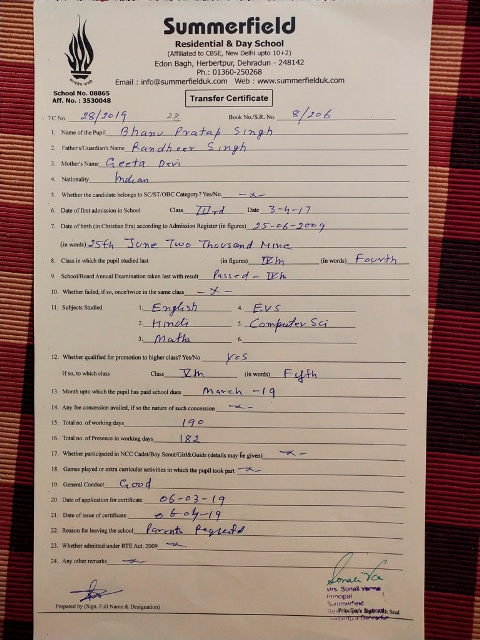 Summerfield
Residential & Day School
(Affiliated to CBSE, New Delhi upto 10+2)
Edon Bagh, Herbertpur, Dehradun - 248142
Ph.: 01360-250268
Email : info@summerfielduk.com Web : www.summerfielduk.com
School No. 08865
Aff. No. : 3530048
Transfer Certificate
TC No. 28/2019 28 Book No./S.R. No. 8/206
1. Name of the Pupil Bhanu Pratap Singh
2. Father's/Guardian's Name Randheer Singh
3. Mother's Name Geeta Devi
4. Nationality Indian
5. Whether the candidate belongs to SC/ST/OBC Category? Yes/No. -x-
6. Date of first admission in School Class IIIrd Date 3-4-17
7. Date of birth (in Christian Era) according to Admission Register (in figures) 25-06-2009
(in words) 25th June Two Thousand Nine
8. Class in which the pupil studied last (in figures) IVth (in words) Fourth
9. School/Board Annual Examination taken last with result Passed - IVth
10. Whether failed, if so, once/twice in the same class -x-
11. Subjects Studied 1. English 4. EVS
2. Hindi 5. Computer Sci
3. Maths 6.
12. Whether qualified for promotion to higher class? Yes/No Yes
If so, to which class Class Vth (in words) Fifth
13. Month upto which the pupil has paid school dues March -19
14. Any fee concession availed, if so the nature of such concession -x-
15. Total no. of working days 190
16. Total no. of Presence in working days 182
17. Whether participated in NCC Cadet/Boy Scout/Girl&Guide (details may be given) -x-
18. Games played or extra curricular activities in which the pupil took part -x-
19. General Conduct Good
20. Date of application for certificate 06-03-19
21. Date of issue of certificate 06-04-19
22. Reason for leaving the school Parents Request
23. Whether admitted under RTE Act. 2009 -x-
24. Any other remarks -x-
Mrs. Sonali Verma
Principal
Summerfield
Prepared by (Sign. Full Name & Designation) Seal